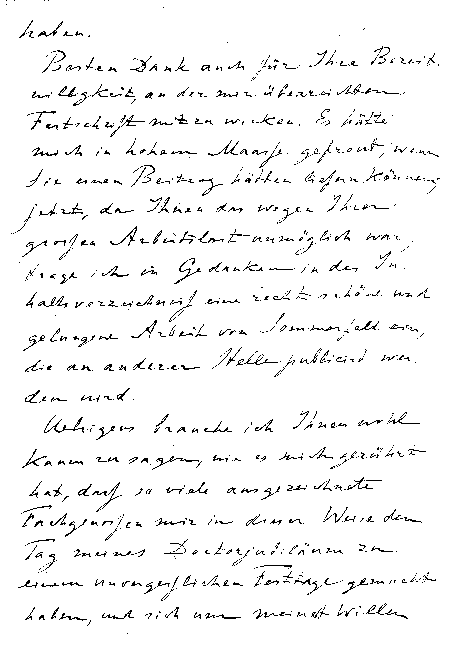 haben.
Besten Dank auch für Ihre Bereit-
willigkeit, an der mir überreichten
Festschrift mitzuwirken. Es hätte
mich in hohem Maasse gefreut, wenn
Sie einen Beitrag hätten liefern können;
jetzt, da Ihnen das wegen Ihrer
grossen Arbeitslast unmöglich war,
trage ich in Gedanken in das In-
haltsverzeichniss eine recht schöne und
gelungene Arbeit von Sommerfeld ein,
die an anderer Stelle publicirt wer-
den wird.
Uebrigens brauche ich Ihnen wohl
kaum zu sagen, wie es mich gerührt
hat, dass so viele ausgezeichnete
Fachgenossen mir in dieser Weise den
Tag meines Doctorjubiläums zu
einem unvergesslichen Festtage gemacht
haben, und sich um meinet Willen